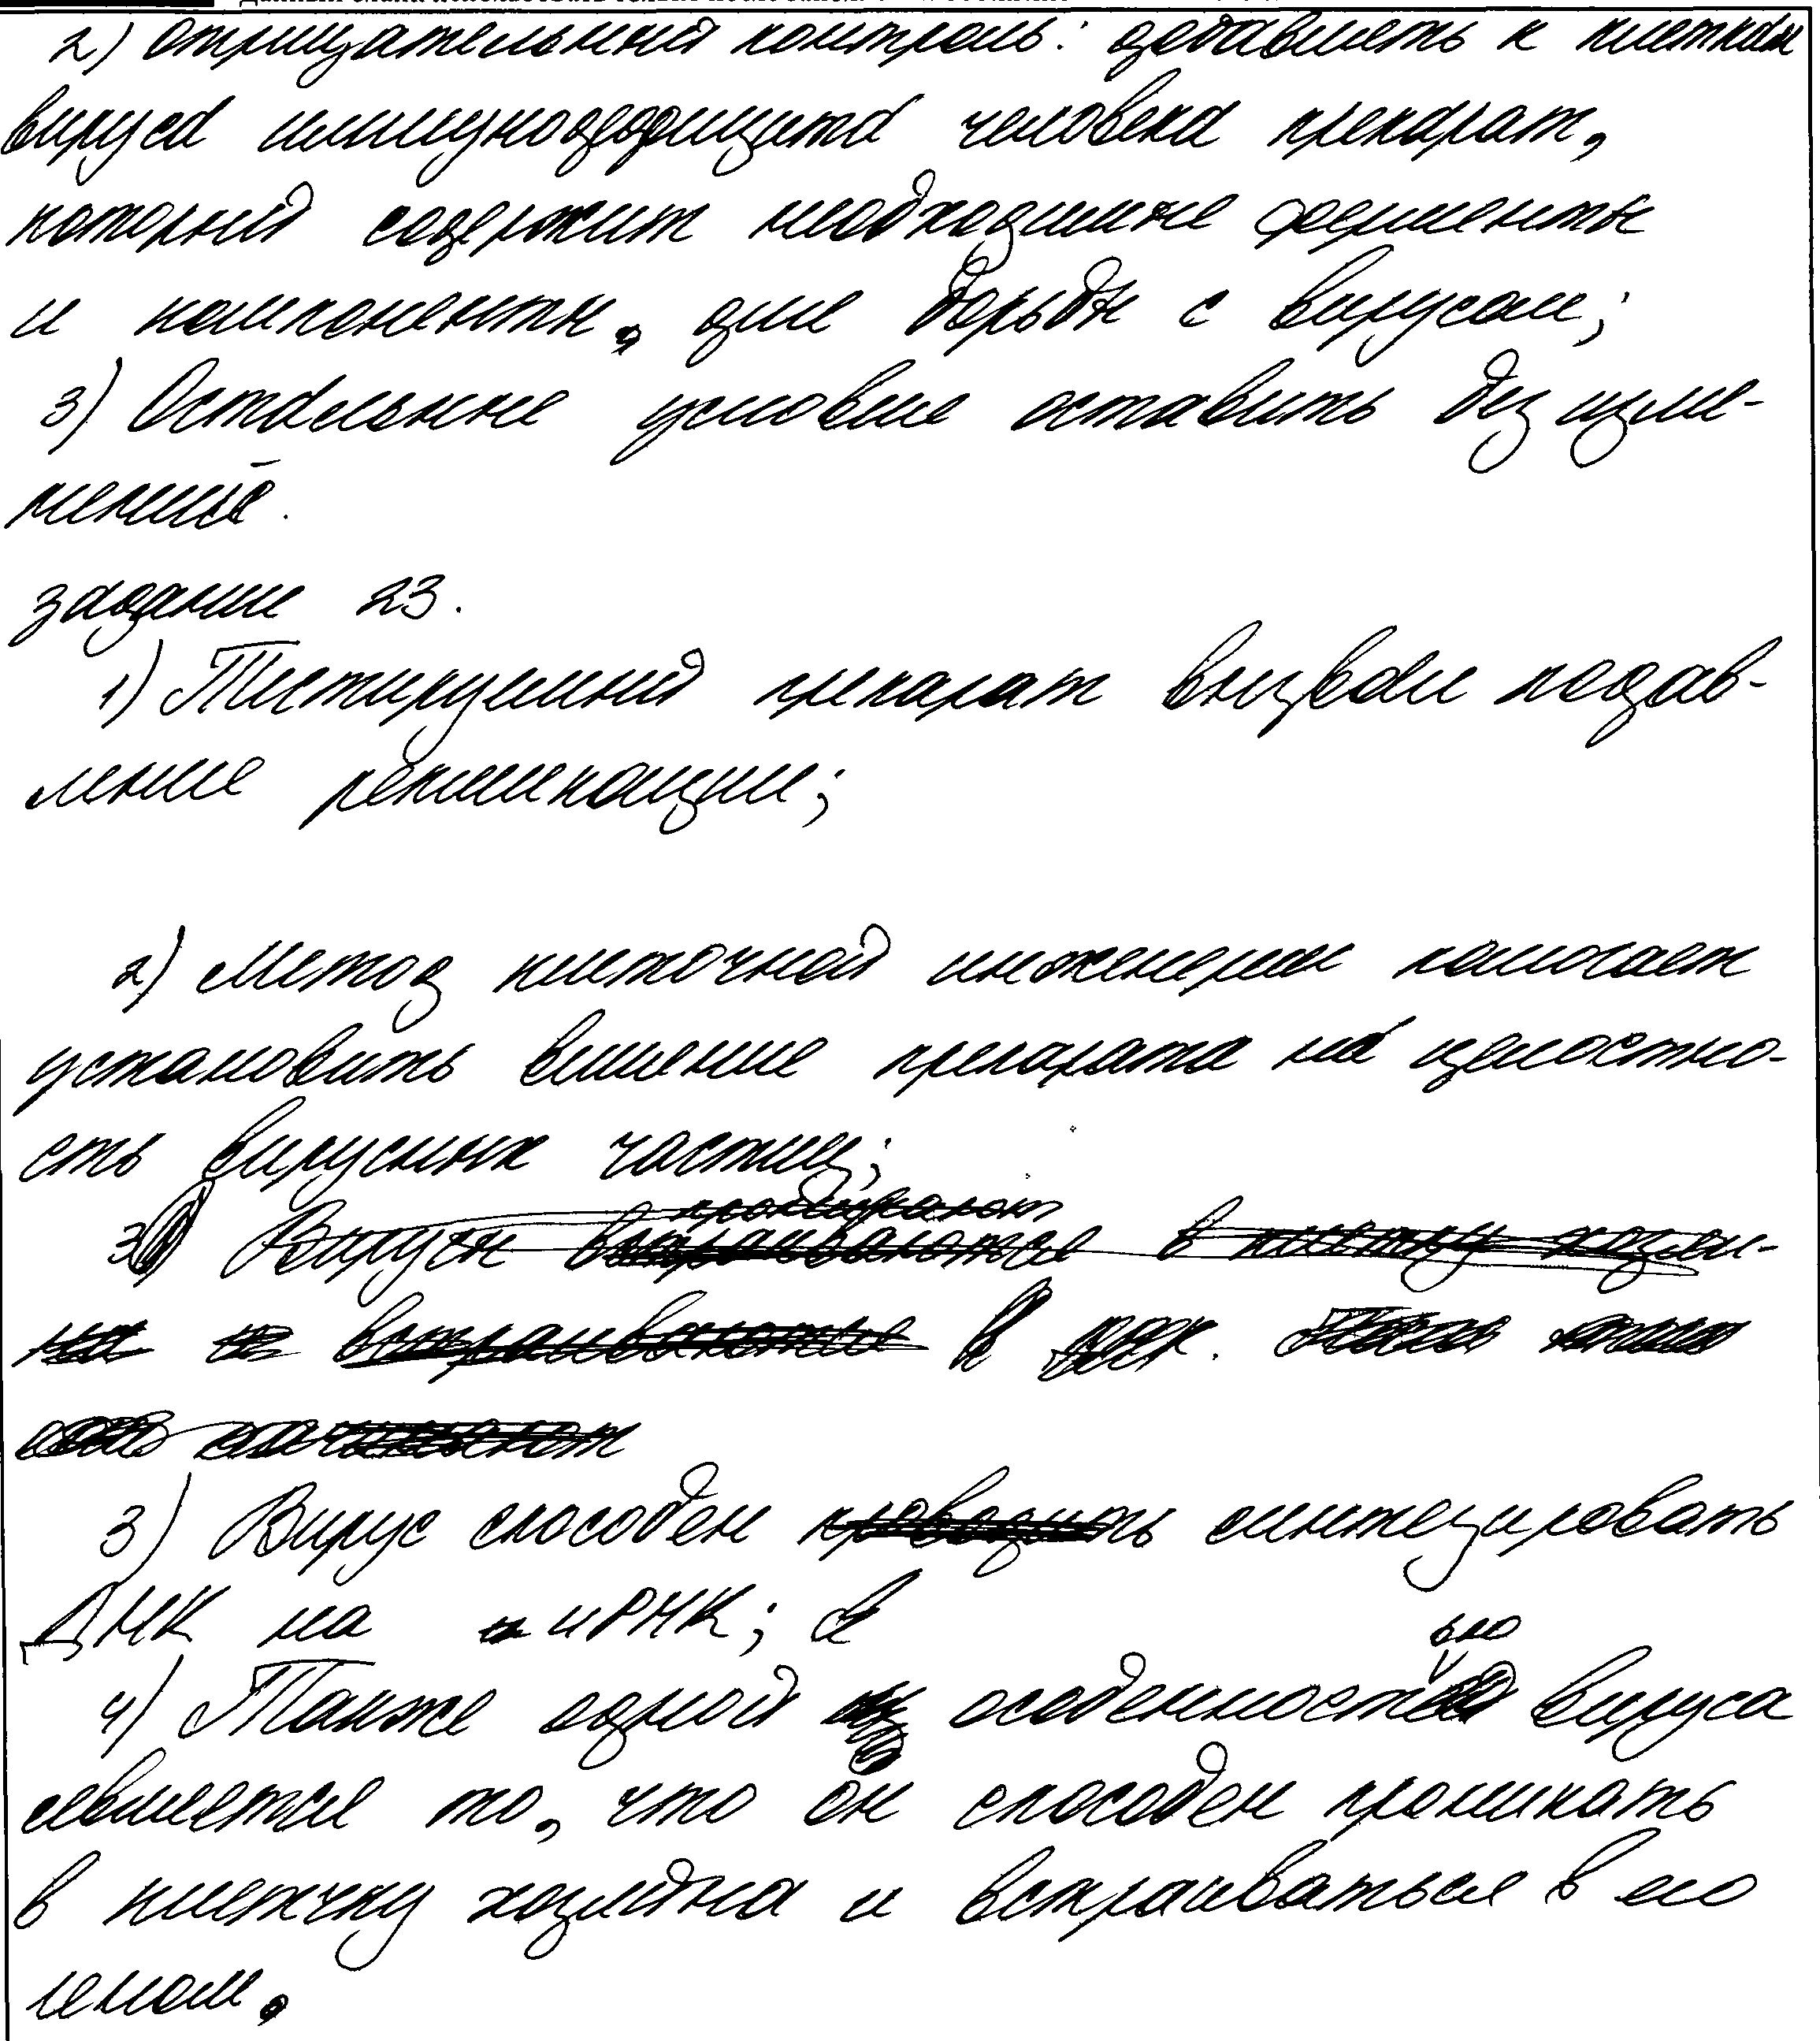 2) Отрицательный контроль: добавлять к клеткам
вируса иммунодефицита человека препарат,
который содержит необходимые ферменты
и компоненты, для борьбы с вирусом;
3) Остальные условия оставить без изме-
нений.
задание 23.
1) Тестируемый препарат вызвал подав-
ление репликации;
2) Метод клеточной инженерии помогает
установить влияние препарата на целостно-
сть вирусных частиц;
проникают
3) Вирусы встраиваются в клетку хозяи-
на и встраиваются в
начинают
3) Вирус способен проводить синтезировать
ДНК на иРНК;
ью
4) Также одной из особенностей вируса
является то, что он способен проникать
в клетчку хозяина и встраиваться в его
геном.